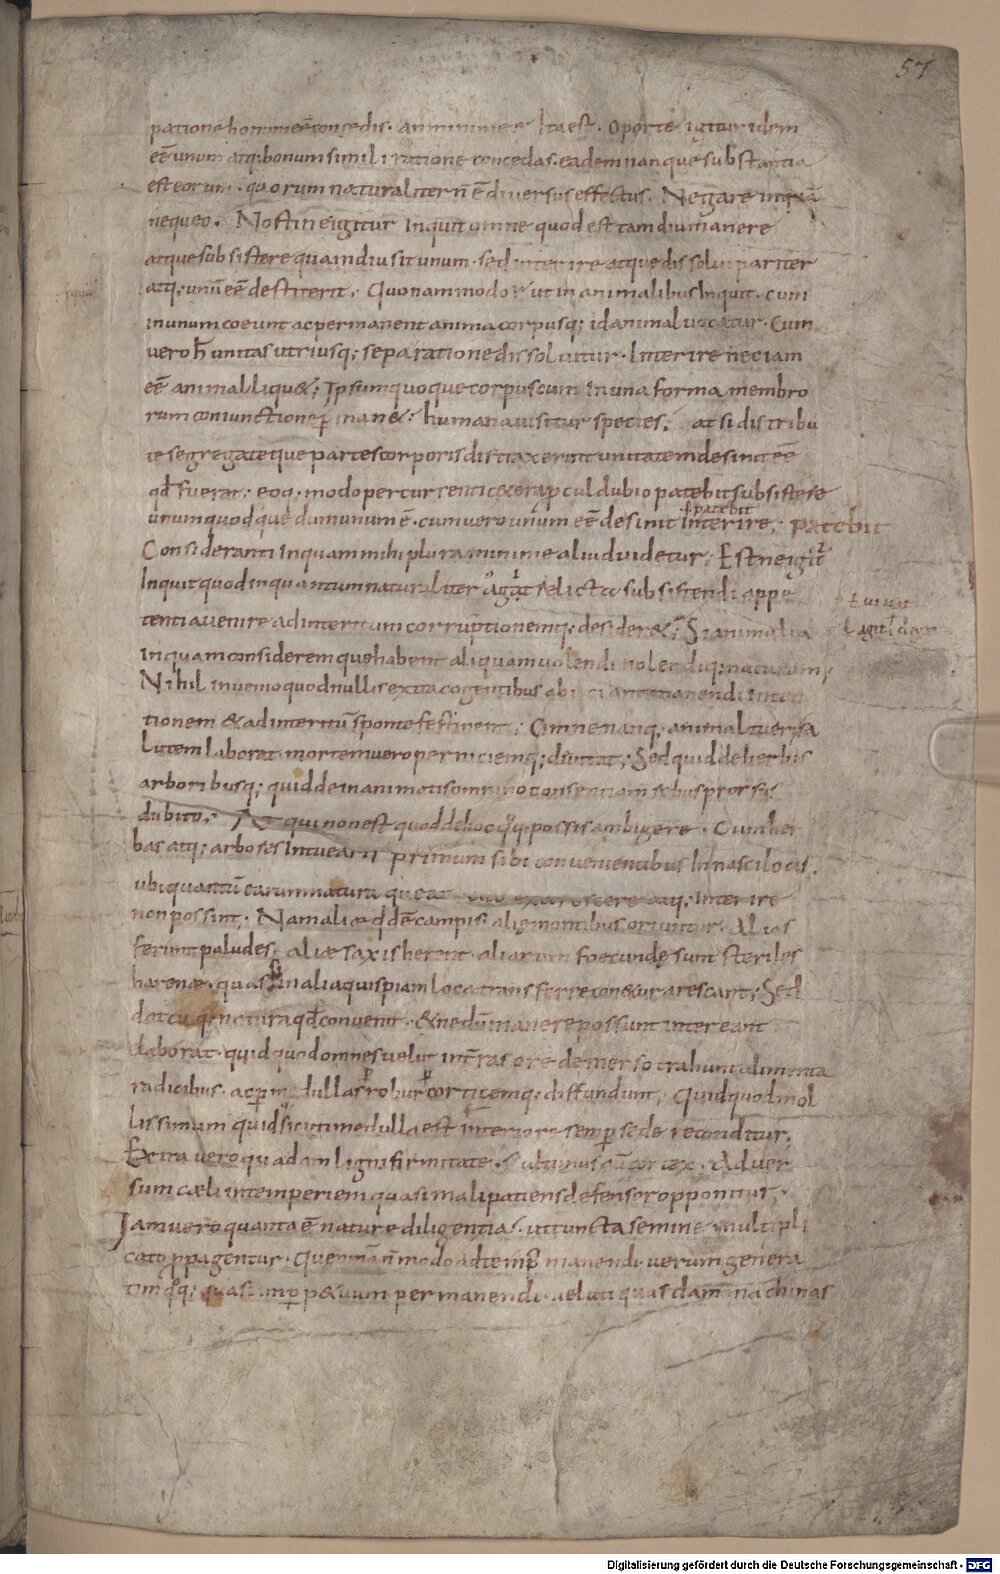 57
patione bonum eē concedis. an minime? Ita est. Oportet igitur idem
eē unum atq; bonum simili ratione concedas. eadem namque substantia
est eorum. quorum naturaliter n̄ ē diversus effectus. Negare inquā
nequeo. Nostine igitur inquit omne quod est tam diu manere
atque subsistere quam diu sit unum. sed interire atque dissolvi pariter
atq; unū eē destiterit. Quonam modo? ut in animalibus inquit. cum
in unum coeunt ac permanent anima corpusq; id animal vocatur. Cum
vero h̄ unitas utriusq; separatione dissolvitur. Interire nec iam
eē animal liqu&; Ipsum quoque corpus cum in una forma membro
rum coniunctione p̱man&; humana visitur species; at si distribu
te segregateque partes corporis distraxerint unitatem desinit eē
qd̄ fuerat; eoq; modo percurrenti cetera p̱cul dubio patebit subsistere
ł patebit
unum quodque dum unum ē. cum vero unum eē desinit interire; patebit
Consideranti inquam mihi plura minime aliud videtur; Estne igit̄
Inquit quod in quantum naturaliter agat relicta subsistendi appe
tentia venire ad interitum corruptionemq; desider&; Si animalia
inquam considerem que habent aliquam volendi nolendiq; naturam;
Nihil invenio quod nullis extra cogentibus abiciant manendi inten
tionem & ad interitū sponte festinent; Omne nanq; animal tueri sa
lutem laborat. mortem vero perniciemq; divitat; Sed quid de herbis
arboribusq; quid de inanimatis omnino consentiam rebus prorsus
dubito; At qui non est quod de hoc q̄q; possis ambigere. Cum her
bas atq; arbores intuearis primum sibi convenientibus innasci locis.
ubi quantū earum natura queat cito exarescere atq; interire
non possint; Nam aliæ qdē campis. alię montibus oriuntur. Alias
ferunt paludes; aliæ saxis herent. aliarum foecundę sunt steriles
harenæ. quas si in alia quispiam loca transferre con&ur arescant; Sed
dat cuiq; natura qd̄ convenit. & ne dū manere possunt intereant
laborat. quid quod omnes velut in t̄ras ore demerso trahunt alimenta
radicibus. ac p̱ medullas robur corticemq; diffundunt; Quid quod mol
lissimum quid sicuti medulla est interiore semp̱ sede reconditur.
Extra vero quadam ligni firmitate. ultimus aū cortex. Adver
sum cæli intemperiem quasi mali patiens defensor opponitur;
Iam vero quanta ē nature diligentia. ut cuncta semine multipli
cato p̱pagentur. Que omīa n̄ modo ad tempꝰ manendi. verum genera
tim q̄q; quasi in p̱p&uum permanendi. veluti quasdam machinas
Digitalisierung gefördert durch die Deutsche Forschungsgemeinschaft - DFG